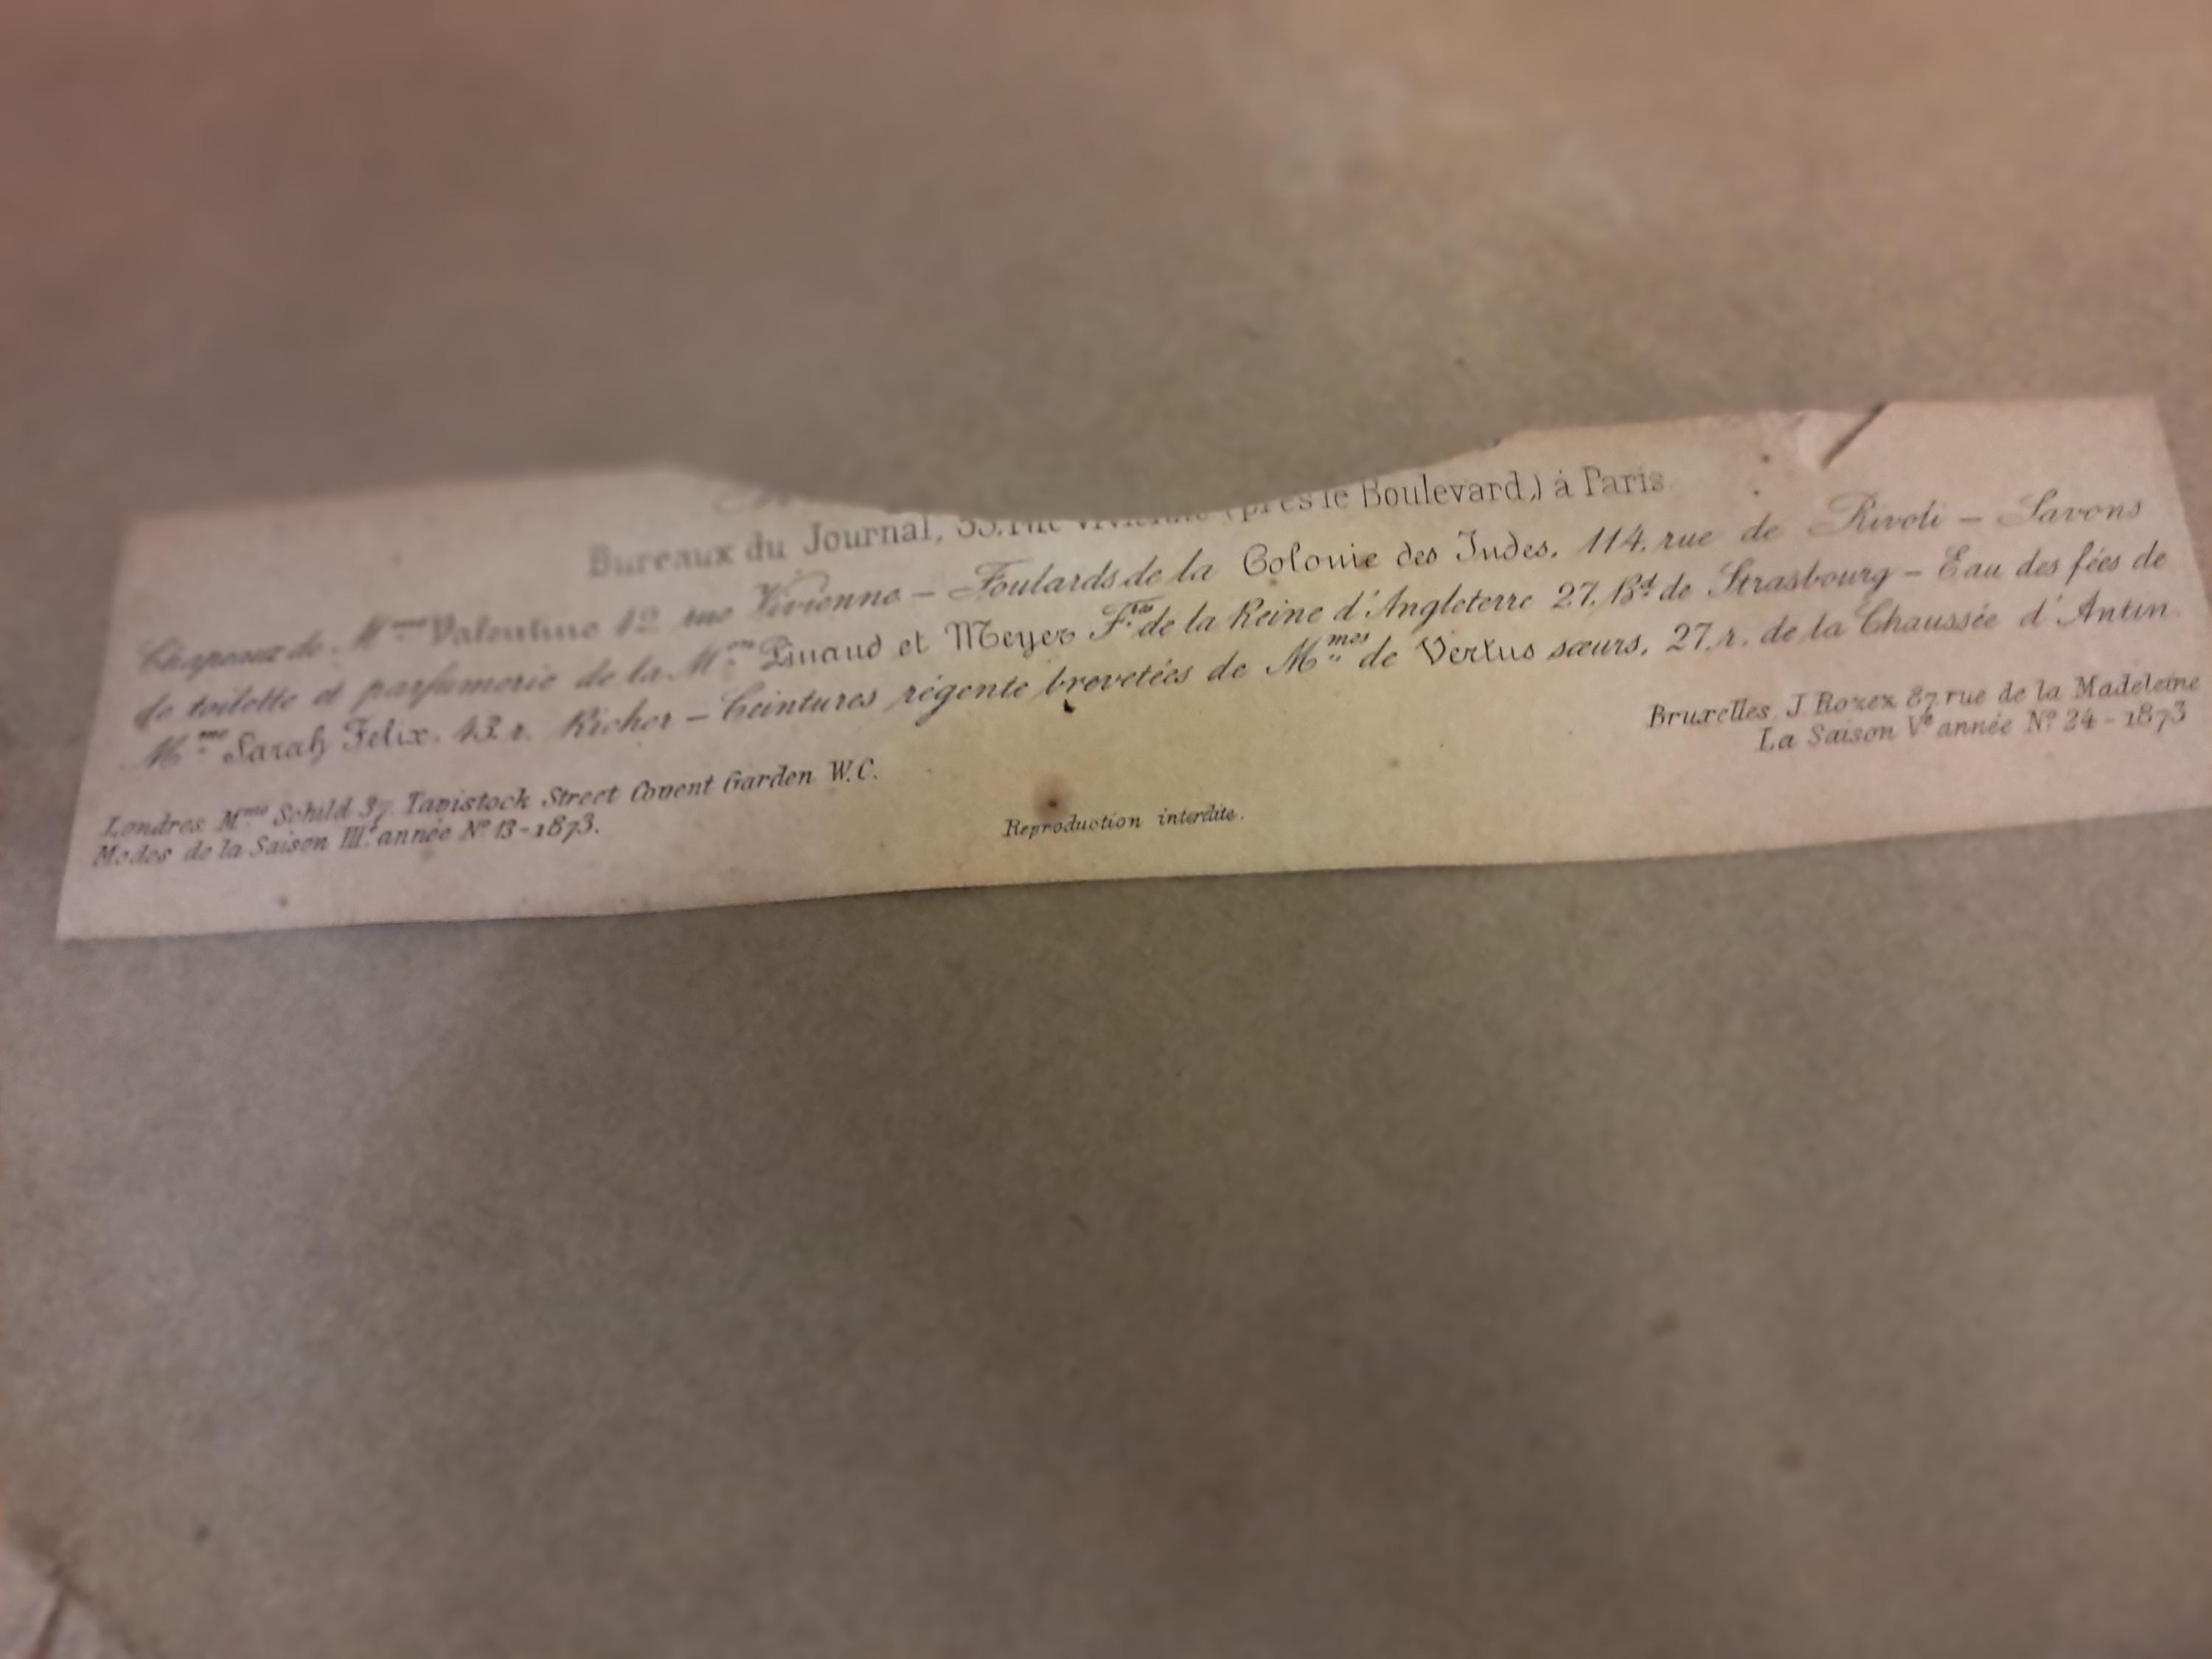 Bureaux du Journal, 53, rue Vivienne (près le Boulevard,) à Paris
Chapeaux de M.me Valentine 42 rue Vivienne – Foulards de la Colonie des Indes, 114, rue de Rivoli – Savons
de toilette et parfumerie de la M.on Pinaud et Meyer F.rs de la Reine d'Angleterre 27, B.d de Strasbourg – Eau des fées de
M.me Sarah Felix. 43 r. Richer – Ceintures régente brevetées de M.mes de Vertus sœurs, 27, r. de la Chaussée d'Antin.
Londres, M.me Schild 37, Tavistock Street Covent Garden W.C.
Modes de la Saison III.e année N.o 13 - 1873.
Reproduction interdite.
Bruxelles, J. Rozez 87 rue de la Madeleine
La Saison V.e année N.o 24 - 1873